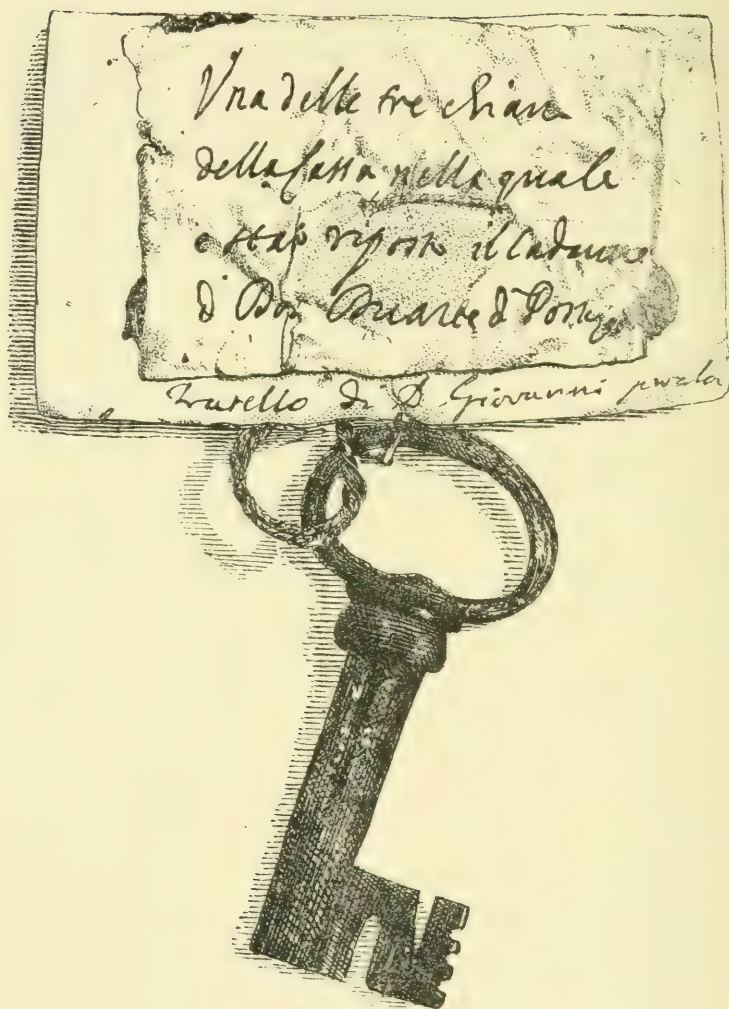 Una delle tre chiavi
della Cassa nella quale
è stato riposto il Cadavere
d Don Duarte d Portog
fratello di D. Giovanni